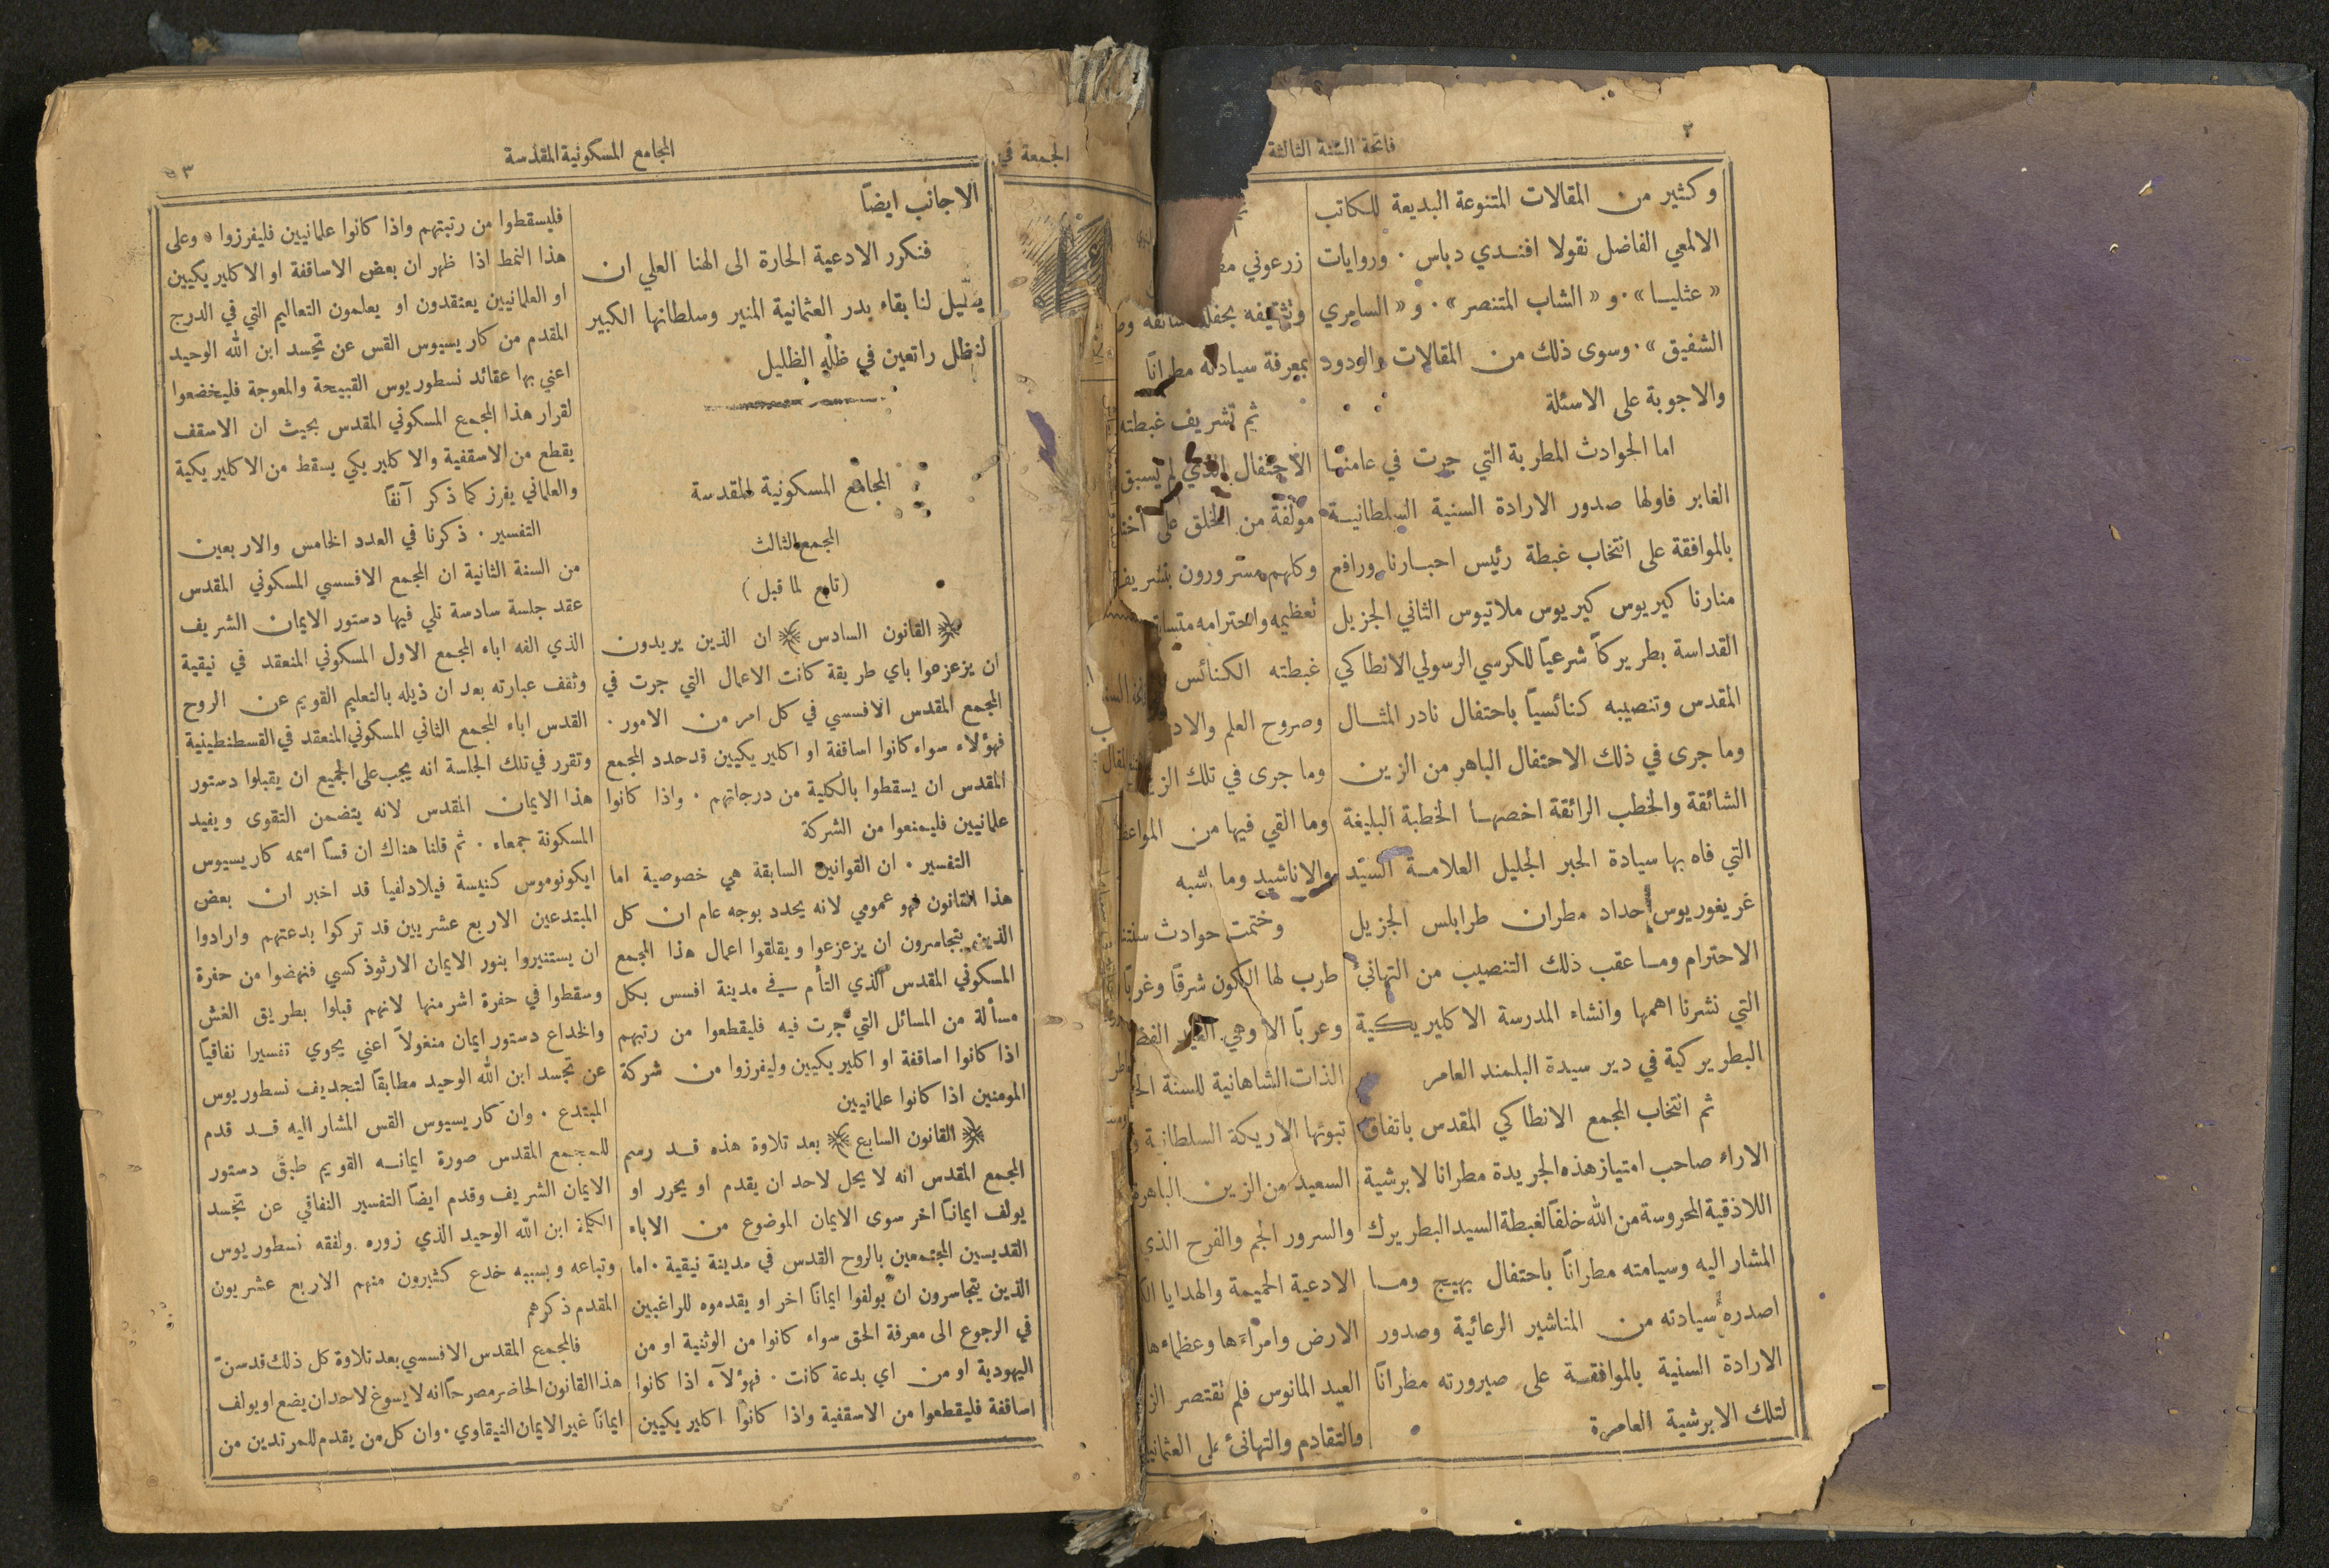 ٢
فاتحة السنة الثالثة
وكثير من المقالات المتنوعة البديعة للكاتب
الالمعي الفاضل نقولا افندي دباس . وروايات
« عثليا » . و « الشاب المتنصر » . و « السامري
الشفيق » . وسوى ذلك من المقالات والردود
والاجوبة على الاسئلة
اما الحوادث المطربة التي جرت في عامنا
الغابر فاولها صدور الارادة السنية السلطانية
بالموافقة على انتخاب غبطة رئيس احبارنا ورافع
منارنا كيريوس كيريوس ملاتيوس الثاني الجزيل
القداسة بطريركاً شرعيّاً للكرسي الرسولي الانطاكي
المقدس وتنصيبه كنائسيّاً باحتفال نادر المثال
وما جرى في ذلك الاحتفال الباهر من الزين
الشائقة والخطب الرائقة اخصها الخطبة البليغة
التي فاه بها سيادة الحبر الجليل العلامة السيد
غريغوريوس حداد مطران طرابلس الجزيل
الاحترام وما عقب ذلك التنصيب من التهانئ
التي نشرنا اهمها وانشاء المدرسة الاكليريكية
البطريركية في دير سيدة البلمند العامر
ثم انتخاب المجمع الانطاكي المقدس باتفاق
الاراء صاحب امتياز هذه الجريدة مطرانا لابرشية
اللاذقية المحروسة من الله خلفاً لغبطة السيد البطريرك
المشار اليه وسيامته مطراناً باحتفال بهيج وما
اصدره سيادته من المناشير الرعائية وصدور
الارادة السنية بالموافقة على صيرورته مطراناً
لتلك الابرشية العامرة
زرعوني
وتثقيفه بحفلة شائقة
بمعرفة سيادته مطراناً
ثم تشريف غبطته
الاحتفال الذي لم يسبق
مؤلفة من الخلق على
وكلهم مسرورون بتشريف
تعظيمه واحترامه
غبطته الكنائس
وصروح العلم
وما جرى في تلك
وما القي فيها من
والاناشيد وما اشبه
وختمت حوادث سنتنا
طرب لها الكون شرقاً وغرباً
وعرباً الا وهي
الذات الشاهانية للسنة
تبوئها الاريكة السلطانية
السعيد من الزين الباهرة
والسرور الجم والفرح الذي
الادعية الحميمة والهدايا
الارض وامراءها وعظماءها
العيد المانوس فلم تقتصر
والتقادم والتهانئ على
الجمعة في
المجامع المسكونية المقدسة
٣
الاجانب ايضاً
فنكرر الادعية الحارة الى الهنا العلي ان
يطيل لنا بقاء بدر العثمانية المنير وسلطانها الكبير
لنظل راتعين في ظله الظليل
المجامع المسكونية المقدسة
المجمع الثالث
(تابع لما قبل)
القانون السادس ان الذين يريدون
ان يزعزعوا باي طريقة كانت الاعمال التي جرت في
المجمع المقدس الافسسي في كل امر من الامور .
فهؤلاء سواء كانوا اساقفة او اكليريكيين قد حدد المجمع
المقدس ان يسقطوا بالكلية من درجاتهم . واذا كانوا
علمانيين فليمنعوا من الشركة
التفسير . ان القوانين السابقة هي خصوصية اما
هذا القانون فهو عمومي لانه يحدد بوجه عام ان كل
الذين يتجاسرون ان يزعزعوا ويقلقوا اعمال هذا المجمع
المسكوني المقدس الذي التأم في مدينة افسس بكل
مسألة من المسائل التي جرت فيه فليقطعوا من رتبهم
اذا كانوا اساقفة او اكليريكيين وليفرزوا من شركة
المومنين اذا كانوا علمانيين
القانون السابع بعد تلاوة هذه قد رسم
المجمع المقدس انه لا يحل لاحد ان يقدم او يحرر او
يولف ايماناً اخر سوى الايمان الموضوع من الاباء
القديسين المجتمعين بالروح القدس في مدينة نيقية . اما
الذين يتجاسرون ان يولفوا ايماناً اخر او يقدموه للراغبين
في الرجوع الى معرفة الحق سواء كانوا من الوثنية او من
اليهودية او من اي بدعة كانت . فهؤلاء اذا كانوا
اساقفة فليقطعوا من الاسقفية واذا كانوا اكليريكيين
فليسقطوا من رتبتهم واذا كانوا علمانيين فليفرزوا . وعلى
هذا النمط اذا ظهر ان بعض الاساقفة او الاكليريكيين
او العلمانيين يعتقدون او يعلمون التعاليم التي في الدرج
المقدم من كاريسيوس القس عن تجسد ابن الله الوحيد
اعني بها عقائد نسطوريوس القبيحة والمعوجة فليخضعوا
لقرار هذا المجمع المسكوني المقدس بحيث ان الاسقف
يقطع من الاسقفية والاكليريكي يسقط من الاكليريكية
والعلماني يفرز كما ذكر آنفاً
التفسير . ذكرنا في العدد الخامس والاربعين
من السنة الثانية ان المجمع الافسسي المسكوني المقدس
عقد جلسة سادسة تلي فيها دستور الايمان الشريف
الذي الفه اباء المجمع الاول المسكوني المنعقد في نيقية
وثقف عبارته بعد ان ذيله بالتعليم القويم عن الروح
القدس اباء المجمع الثاني المسكوني المنعقد في القسطنطينية
وتقرر في تلك الجلسة انه يجب على الجميع ان يقبلوا دستور
هذا الايمان المقدس لانه يتضمن التقوى ويفيد
المسكونة جمعاء . ثم قلنا هناك ان قساً اسمه كاريسيوس
ايكونوموس كنيسة فيلادلفيا قد اخبر ان بعض
المبتدعين الاربع عشريين قد تركوا بدعتهم وارادوا
ان يستنيروا بنور الايمان الارثوذكسي فنهضوا من حفرة
وسقطوا في حفرة اشر منها لانهم قبلوا بطريق الغش
والخداع دستور ايمان منغولاً اعني يحوي تفسيرا نفاقياً
عن تجسد ابن الله الوحيد مطابقاً لتجديف نسطوريوس
المبتدع . وان كاريسيوس القس المشار اليه قد قدم
للمجمع المقدس صورة ايمانه القويم طبق دستور
الايمان الشريف وقدم ايضاً التفسير النفاقي عن تجسد
الكلمة ابن الله الوحيد الذي زوره ولفقه نسطوريوس
وتباعه وبسببه خدع كثيرون منهم الاربع عشريون
المقدم ذكرهم
فالمجمع المقدس الافسسي بعد تلاوة كل ذلك قد سن
هذا القانون الحاضر مصرحاً انه لا يسوغ لاحد ان يضع او يولف
ايماناً غير الايمان النيقاوي . وان كل من يقدم للمرتدين من